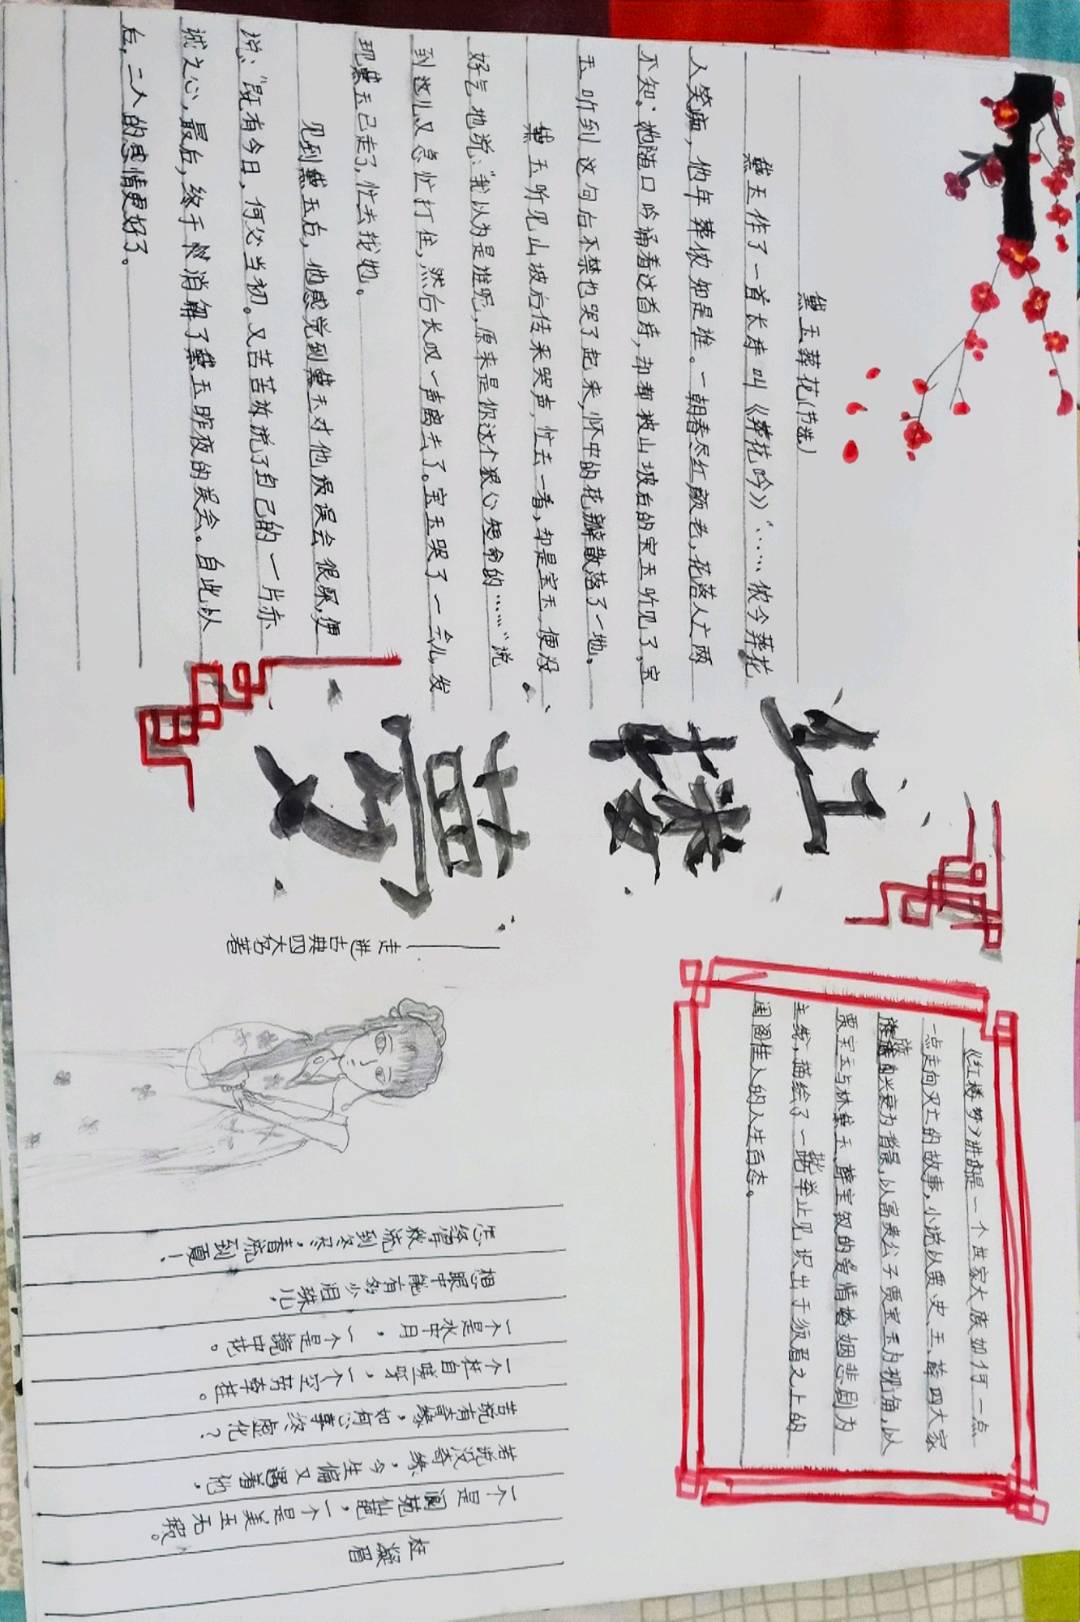 黛玉葬花(节选)
黛玉作了一首长诗叫《葬花吟》“……侬今葬花
人笑痴，他年葬侬知是谁。一朝春尽红颜老，花落人亡两
不知。”她随口吟诵着这首诗，却都被山坡后的宝玉听见了，宝
玉听到这句后不禁也哭了起来，怀中的花瓣散落了一地。
黛玉听见山坡后传来哭声，忙去一看，却是宝玉，便没
好气地说：“我以为是谁呢，原来是你这个狠心短命的……”说
到这儿又急忙打住，然后长叹一声离去了。宝玉哭了一会儿，发
现黛玉已走了，忙去找她。
见到黛玉后，他感觉到黛玉对他误会很深，便
说：“既有今日，何必当初。又苦苦诉说了自己的一片赤
诚之心，最后，终于消解了黛玉昨夜的误会。自此以
后，二人的感情更好了。
红楼梦
——走进古典四大名著
《红楼梦》讲的是一个世家大族如何一点
一点走向灭亡的故事，小说以贾、史、王、薛四大家
族的兴衰为背景，以富贵公子贾宝玉为视角，以
贾宝玉与林黛玉、薛宝钗的爱情婚姻悲剧为
主线，描绘了一批举止见识出于须眉之上的
闺阁佳人的人生百态。
枉凝眉
一个是阆苑仙葩，一个是美玉无瑕。
若说没奇缘，今生偏又遇着他，
若说有奇缘，如何心事终虚化？
一个枉自嗟呀，一个空劳牵挂。
一个是水中月，一个是镜中花。
想眼中能有多少泪珠儿，
怎经得秋流到冬尽，春流到夏！